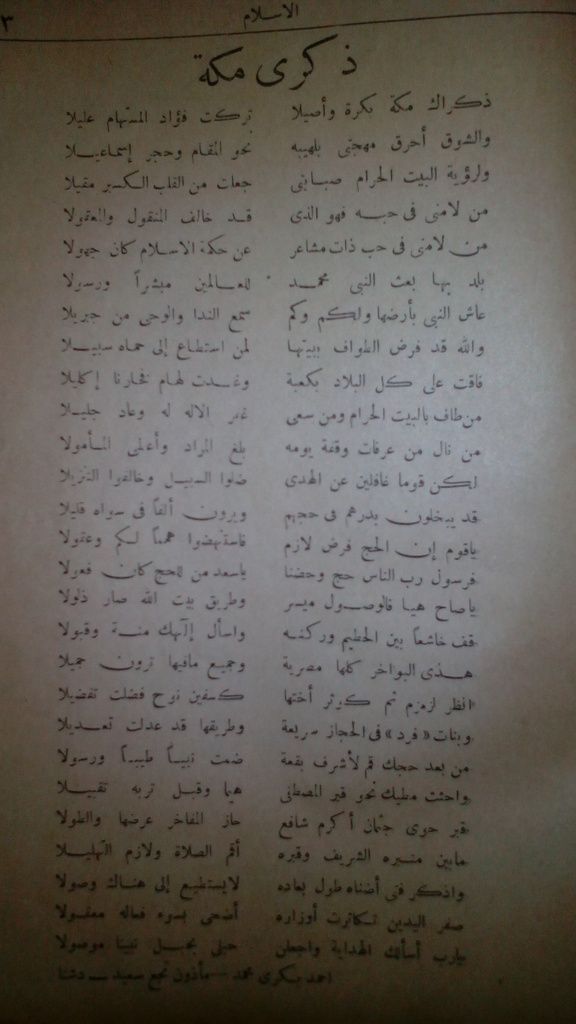 الاسلام
٣
ذكرى مكة
ذكراك مكة بكرة وأصيلا تركت فؤاد المستهام عليلا
والشوق أحرق مهجتى بلهيبه نحو المقام وحجر إسماعيلا
ولرؤية البيت الحرام صبابتى جعلت من القلب الكسير مقيلا
من لامنى فى حبه فهو الذى قد خالف المنقول والمعقولا
من لامنى فى حب ذات مشاعر عن حكمة الاسلام كان جهولا
بلد بها بعث النبى محمد للعالمين مبشراً ورسولا
عاش النبى بأرضها ولكم وكم سمع الندا والوحى من جبريلا
والله قد فرض الطواف ببيتها لمن استطاع إلى حماه سبيلا
فاقت على كل البلاد بكعبة وغدت لهام نخارنا إكليلا
من طاف بالبيت الحرام ومن سعى غفر الاله له وعاد جليلا
من نال من عرفات وقفة يومه بلغ المراد وأعطى المأمولا
لكن قوما غافلين عن الهدى ضلوا السبيل وخالفوا التنزيلا
قد يبخلون بدرهم فى حجهم ويرون ألفاً فى سواه قليلا
ياقوم إن الحج فرض لازم فاستنهضوا همماً لكم وعقولا
فرسول رب الناس حج وحضنا ياسعد من للحج كان فعولا
ياصاح هيا فالوصول ميسر وطريق بيت الله صار ذلولا
قف خاشعاً بين الحطيم وركنه واسأل إلهك منة وقبولا
هذى البواخر كلها مصرية وجميع مافيها ترون جميلا
انظر لزمزم ثم كوثر أختها كسفين نوح فضلت تفضيلا
وبنات «فرد» فى الحجاز سريعة وطريقها قد عدلت تعديلا
من بعد حجك قم لأشرف بقعة ضمت نبياً طيباً ورسولا
واحثت مطيك نحو قبر المصطفى هيا وقبل تربه تقبيلا
قبر حوى جثمان أكرم شافع حاز المفاخر عرضها والطولا
مابين منبره الشريف وقبره أقم الصلاة ولازم التهليلا
واذكر فتى أضناه طول بعاده لايستطيع إلى هناك وصولا
صفر اليدين تكاثرت أوزاره أضحى بسوء فعاله مغلولا
يارب أسألك الهداية واجعلن حبلى بحبل نبينا موصولا
احمد بكرى محمد — مأذون نجع سعيد — دشنا